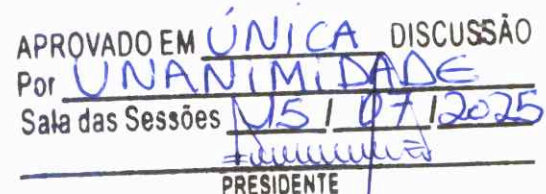 APROVADO EM ÚNICA DISCUSSÃO
Por UNANIMIDADE
Sala das Sessões 15 / 07 / 2025
PRESIDENTE